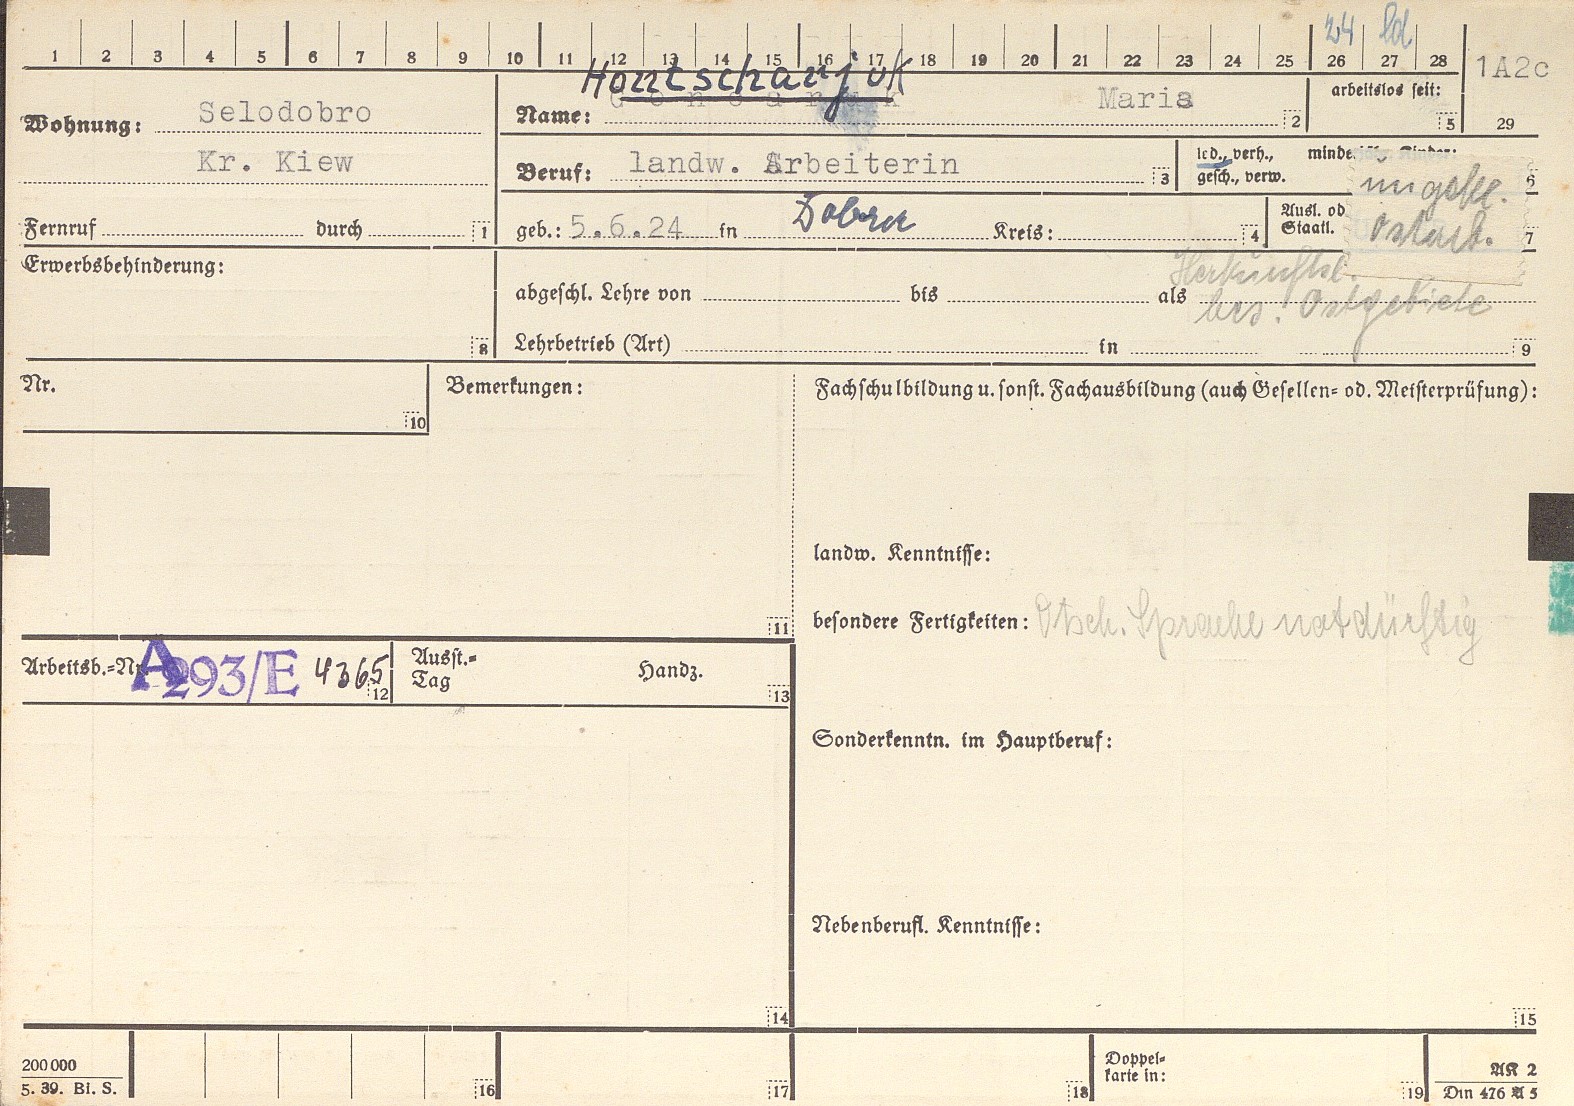 1 2 3 4 5 6 7 8 9 10 11 12 13 14 15 16 17 18 19 20 21 22 23 24 25 26 27 28
24 ld
1A2c
29
Wohnung: Selodobro
Kr. Kiew
Fernruf durch 1
Hontscharjuk
Name: Goncaruk Maria 2
arbeitslos seit: 5
Beruf: landw. Arbeiterin 3
led., verh., gesch., verw.
minderj. Kinder: 6
ungekl.
Ostarb.
geb.: 5.6.24 in Dobra Kreis: 4
Ausl. od.
Staatl. 7
Herkunftsl.
bes. Ostgebiete
Erwerbsbehinderung: 8
abgeschl. Lehre von bis als
Lehrbetrieb (Art) in 9
Nr. 10
Bemerkungen: 11
Fachschulbildung u. sonst. Fachausbildung (auch Gesellen- od. Meisterprüfung):
landw. Kenntnisse:
besondere Fertigkeiten: Dtsch. Sprache notdürftig
Arbeitsb.-Nr. A 293/E 4365 12
Ausst.-
Tag Handz. 13
Sonderkenntn. im Hauptberuf:
Nebenberufl. Kenntnisse:
14
15
200 000
5. 39. Bi. S.
16
17
18
Doppel-
karte in: 19
AK 2
Din 476 A 5